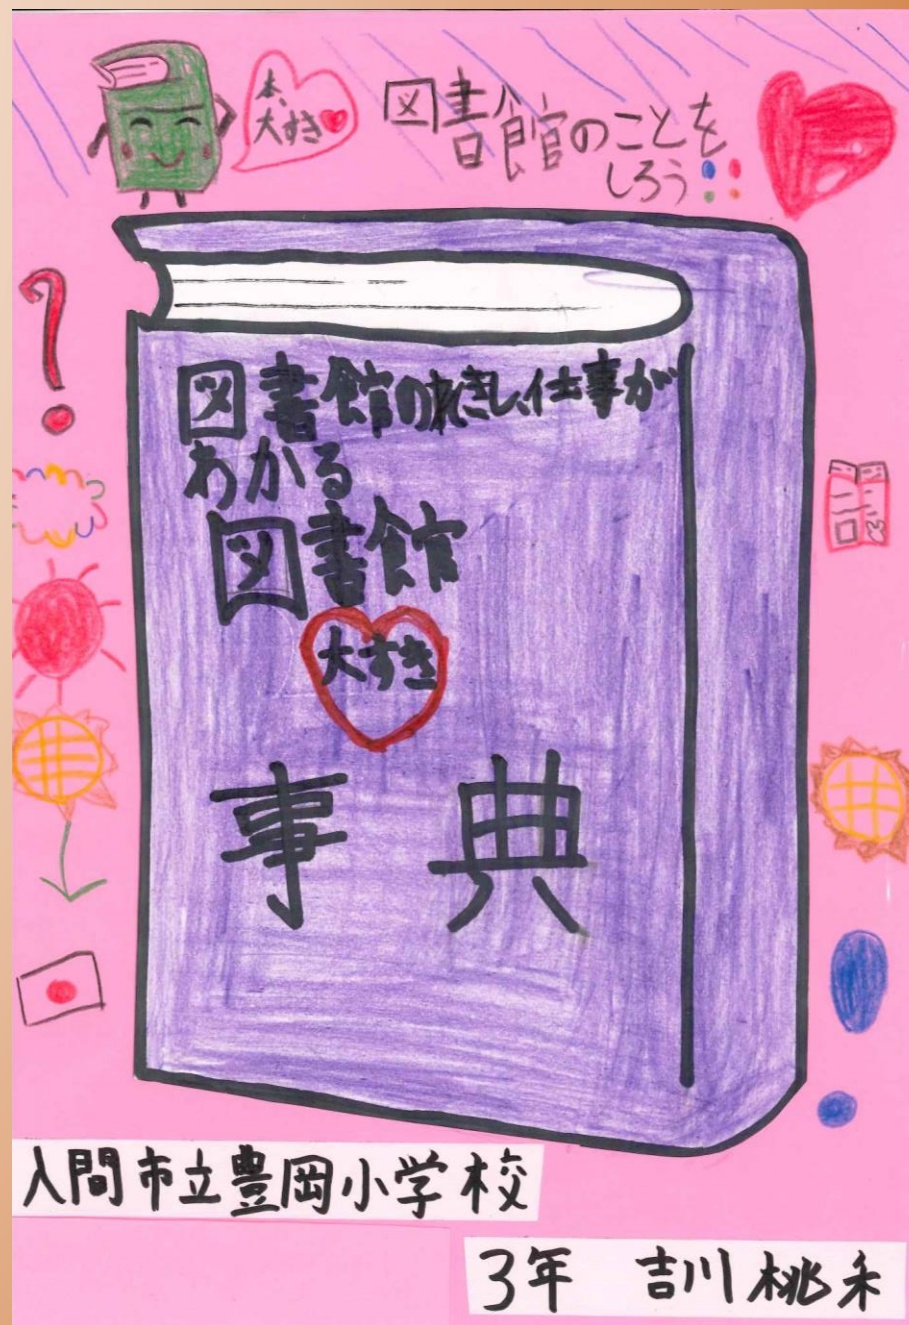 本、
大すき
図書館のことを
しろう
図書館のれきし、仕事が
わかる
図書館
大すき
事典
入間市立豊岡小学校
3年 吉川桃禾